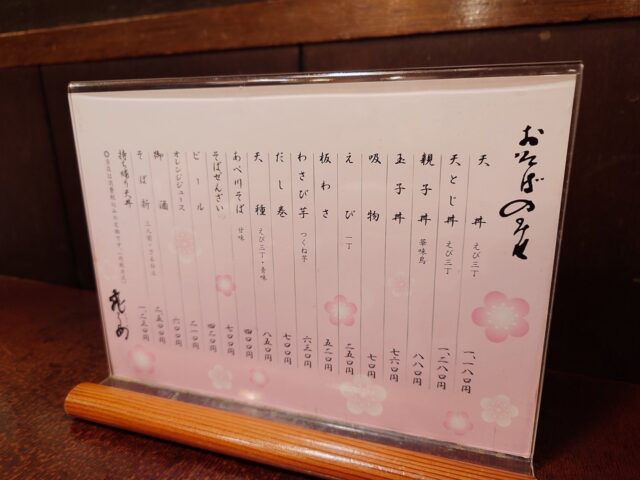 おそばのみせ
天丼 えび三丁 一、一八〇円
天とじ丼 えび三丁 一、二八〇円
親子丼 華味鳥 八八〇円
玉子丼 七六〇円
吸物 七〇円
えび 一丁 二五〇円
板わさ 五二〇円
わさび芋 つくね芋 六三〇円
だし巻 七〇〇円
天種 えび三丁・青味 八五〇円
あべ川そば 甘味 四〇〇円
そばぜんざい 七〇〇円
ビール 四二〇円
オレンジジュース 二一〇円
御酒 六〇〇円
そば新
持ち帰り天丼 一、二五〇円